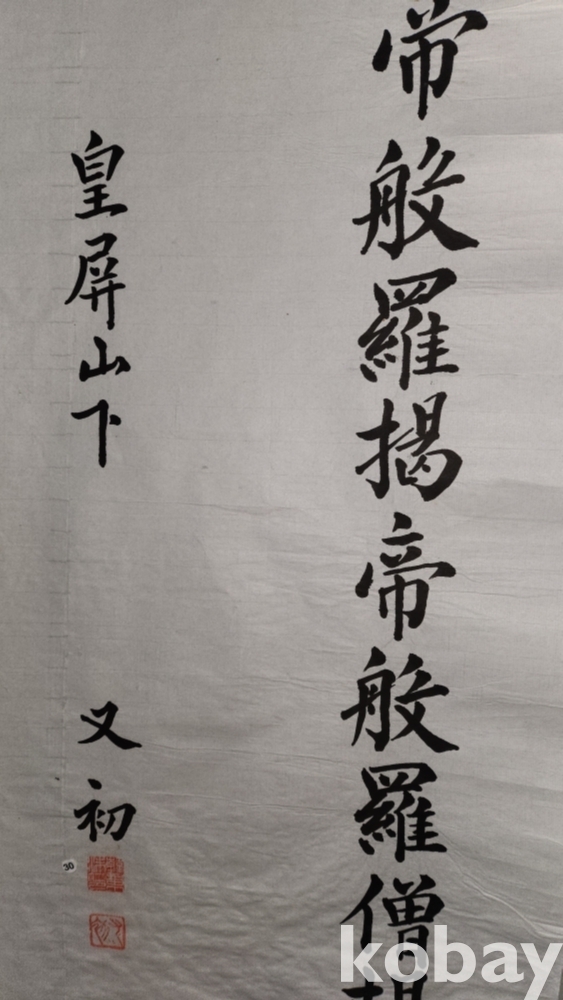 帝般羅揭帝般羅僧揭
皇屏山下
又初
30
kobay